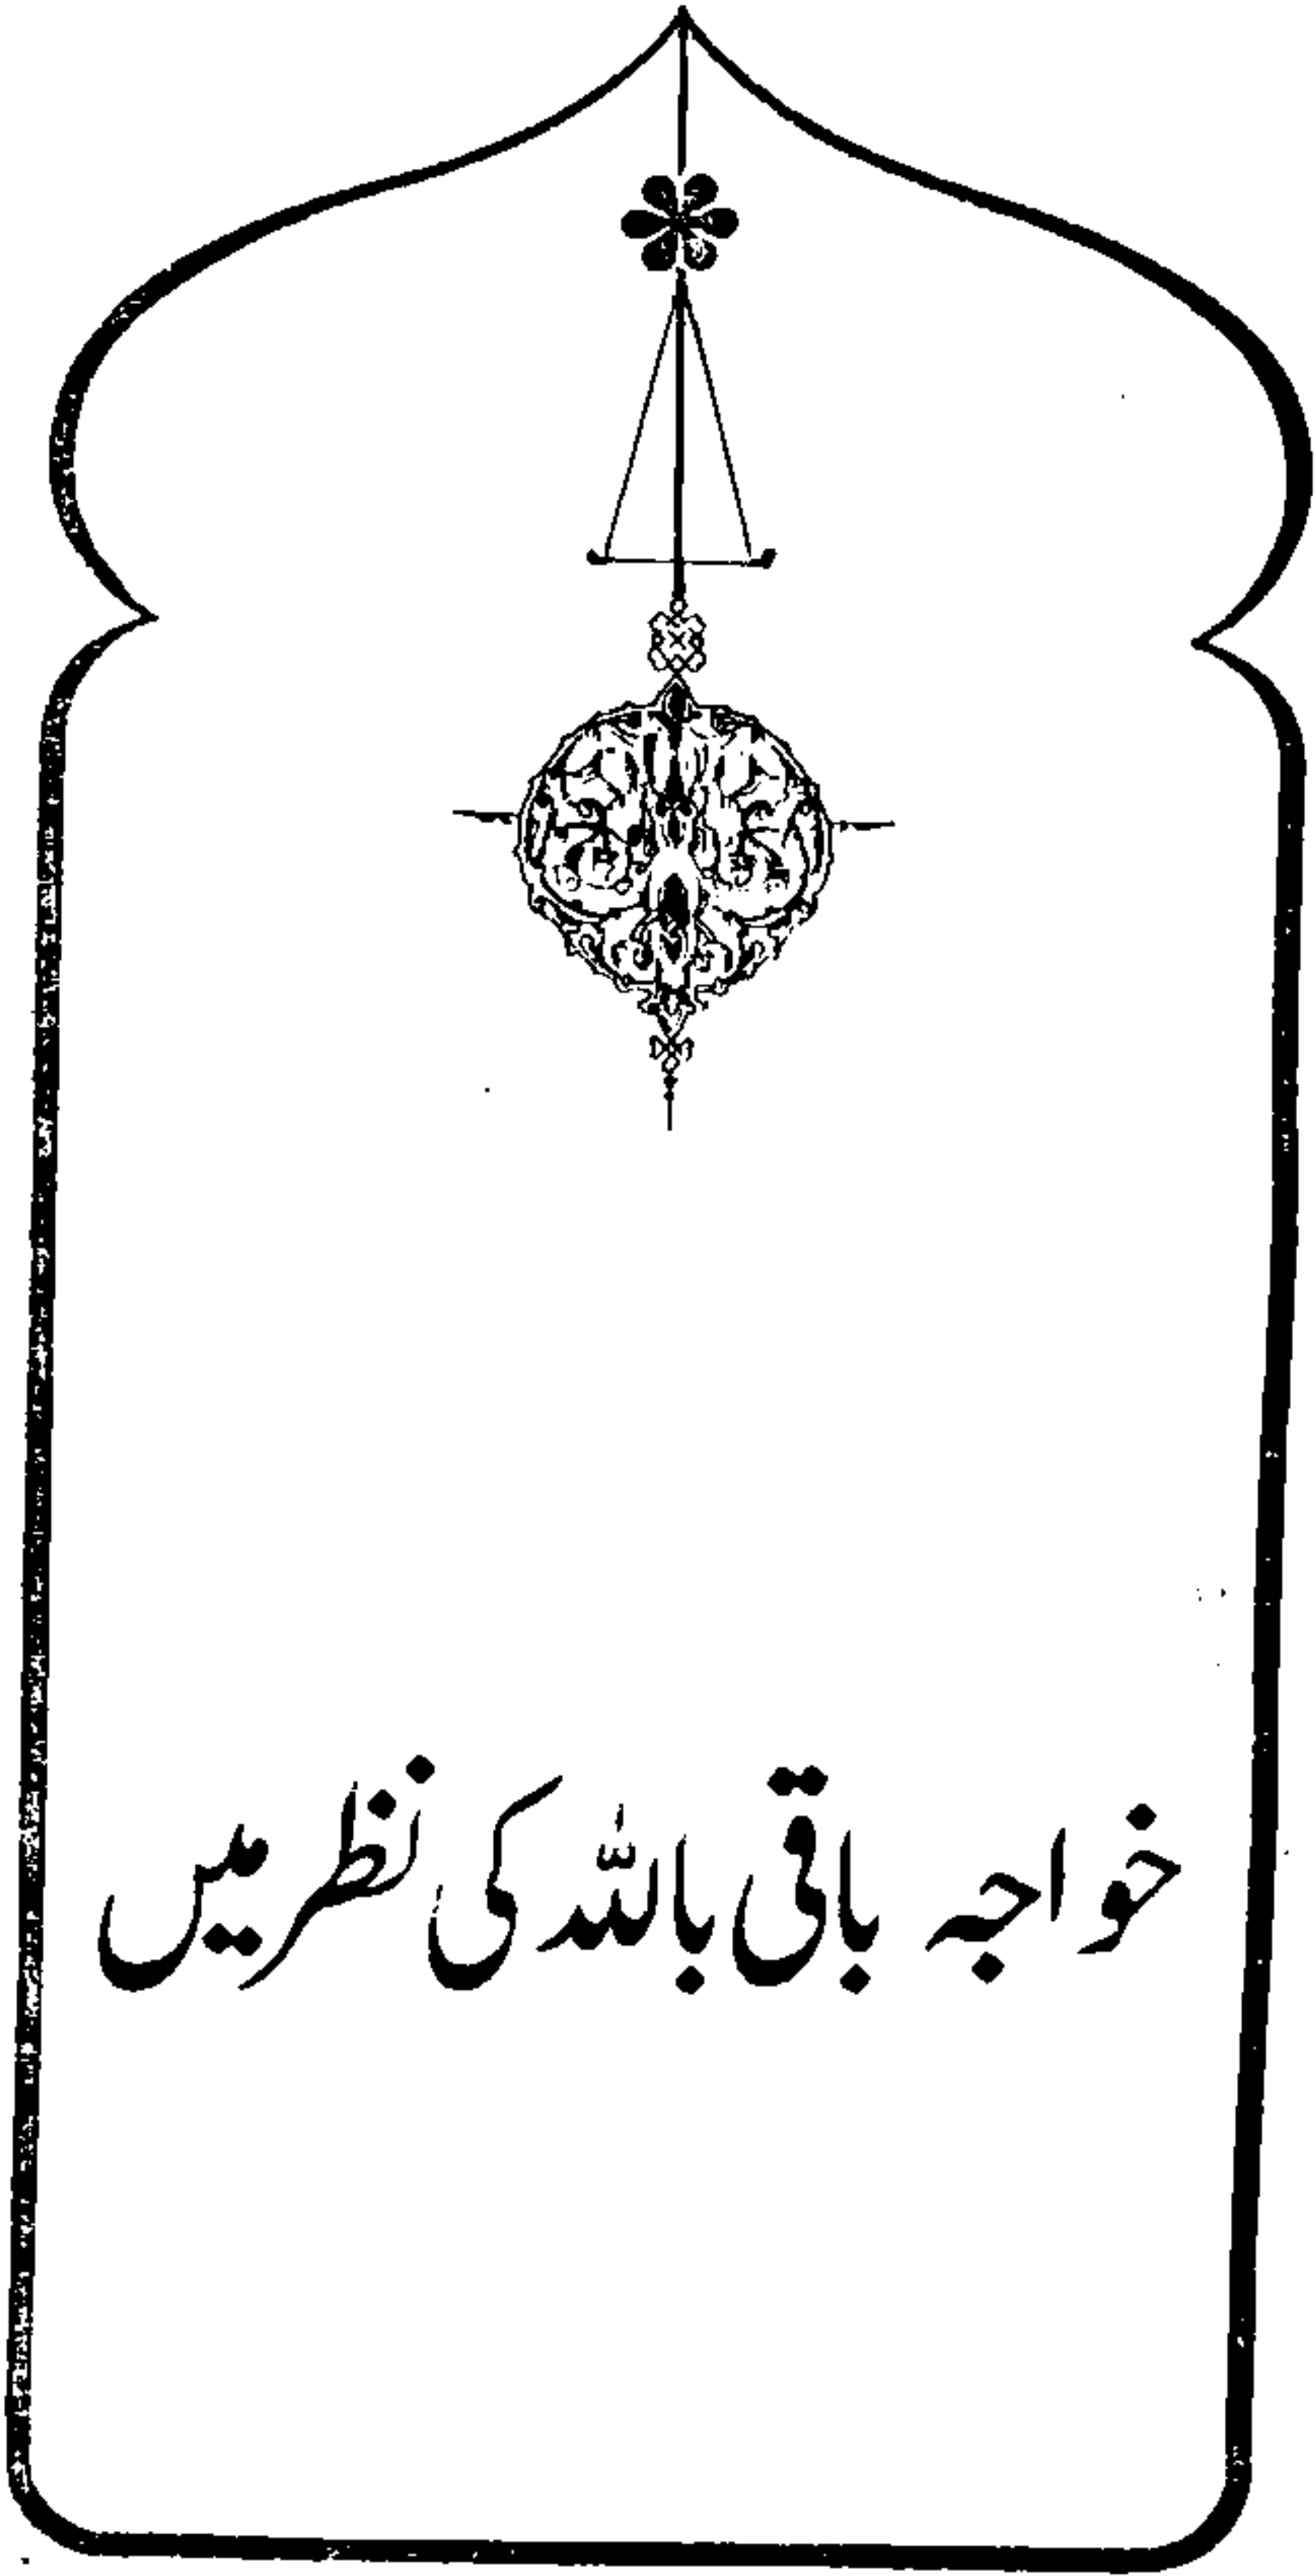 خواجہ باقی باللہ کی نظر میں